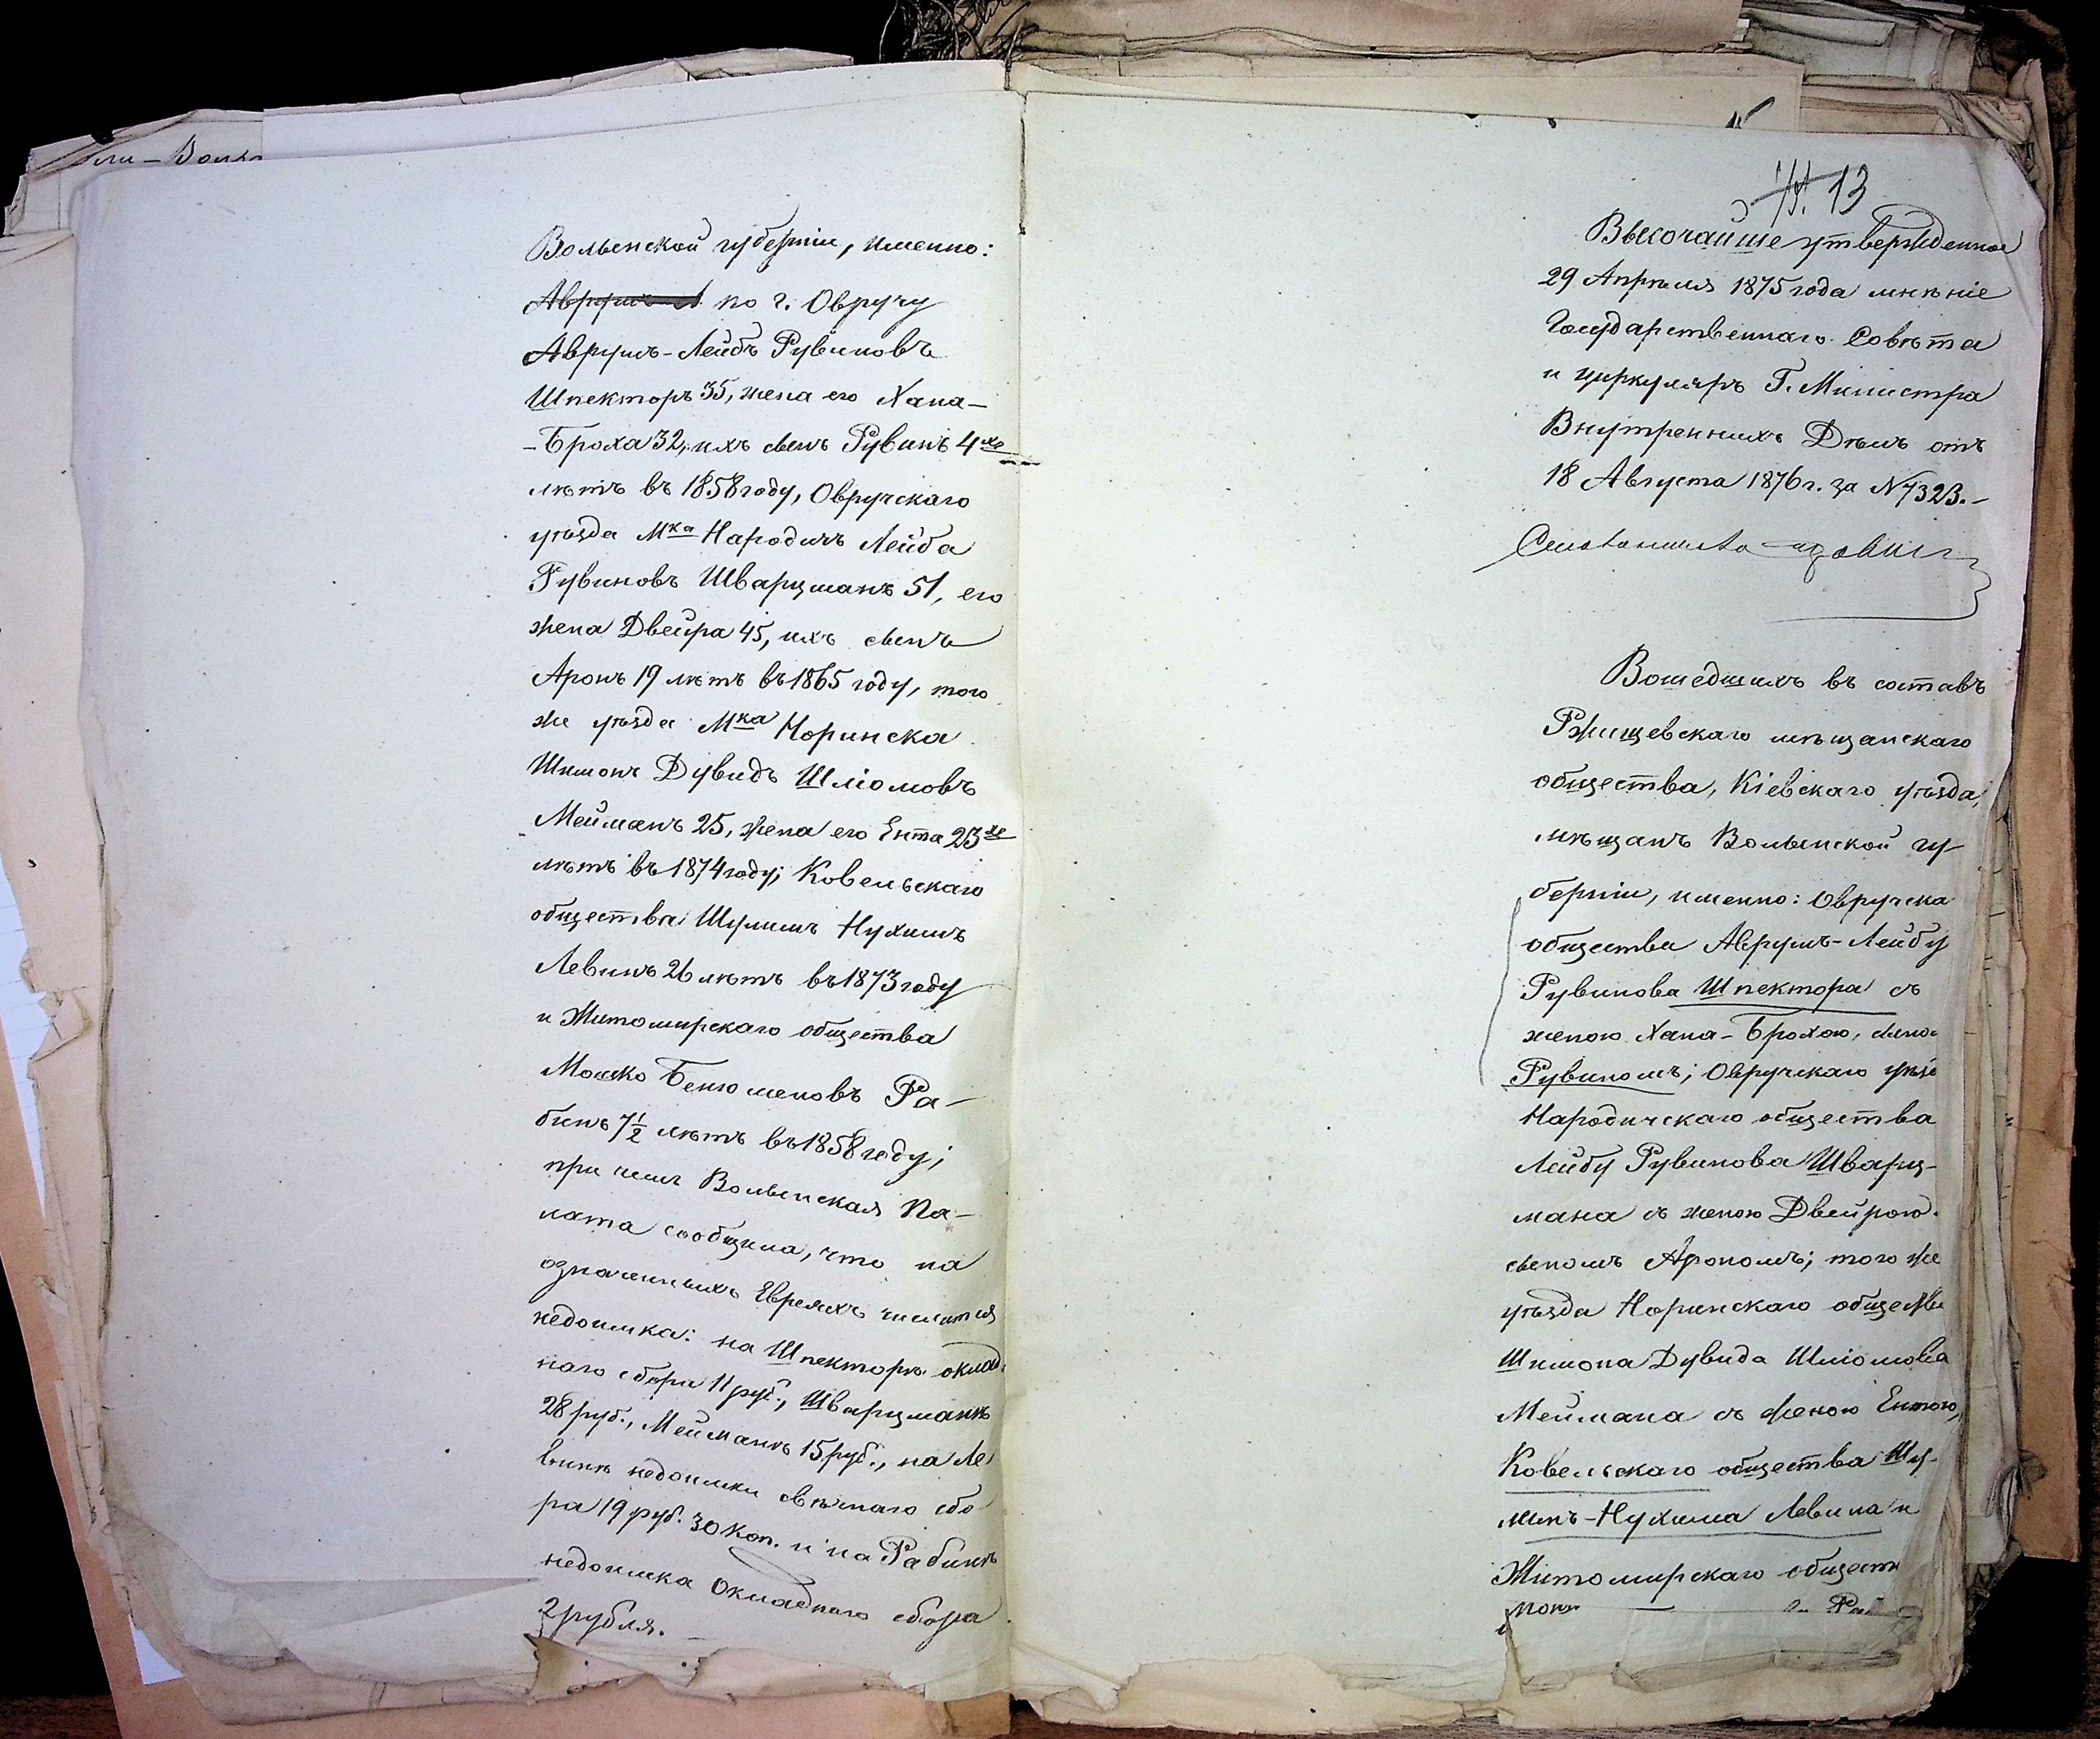 Волынской губерніи, именно:
по г. Овручу
Аврумъ-Лейбъ Рувиновъ
Шпекторъ 35, жена его Хана-
-Броха 32, ихъ сынъ Рувинъ 4хъ
лѣтъ въ 1858 году, Овручскаго
уѣзда Мка Народичъ Лейба
Рувиновъ Шварцманъ 51, его
жена Двейра 45, ихъ сынъ
Аронъ 19 лѣтъ въ 1865 году, того
же уѣзда Мка Норинска
Шимонъ Дувидъ Шліомовъ
Мейманъ 25, жена его Ента 23хъ
лѣтъ въ 1874 году; Ковельскаго
общества Шулимъ Нухимъ
Левинъ 26 лѣтъ въ 1873 году
и Житомирскаго общества
Мошко Бенюменовъ Ра-
бинъ 7½ лѣтъ въ 1858 году;
при чемъ Волынская Па-
лата сообщила, что на
означенныхъ Евреяхъ числится
недоимка: на Шпекторѣ оклад-
наго сбора 11 руб., Шварцманѣ
28 руб., Мейманѣ 15 руб., на Ле
винѣ недоимки свѣчнаго сбо
ра 19 руб. 30 коп. и на Рабинѣ
недоимка окладнаго сбора
2 рубля.
13
Высочайше утвержденное
29 Апрѣля 1875 года мнѣніе
Государственнаго Совѣта
и циркуляръ Г. Министра
Внутреннихъ Дѣлъ отъ
18 Августа 1876 г. за N 7323.-
Вошедшихъ въ составъ
Ржищевскаго мѣщанскаго
общества, Кіевскаго уѣзда,
мѣщанъ Волынской гу-
берніи, именно: Овручска
общества Аврумъ-Лейбу
Рувинова Шпектора съ
женою Хана-Брохою, сыно
Рувиномъ; Овручскаго уѣз
Народичскаго общества
Лейбу Рувинова Шварц-
мана съ женою Двейрою
сыномъ Арономъ; того же
уѣзда Норинскаго обществ
Шимона Дувида Шліомова
Меймана съ женою Ентою,
Ковельскаго общества Шу-
лимъ-Нухима Левина и
Житомирскаго обществ